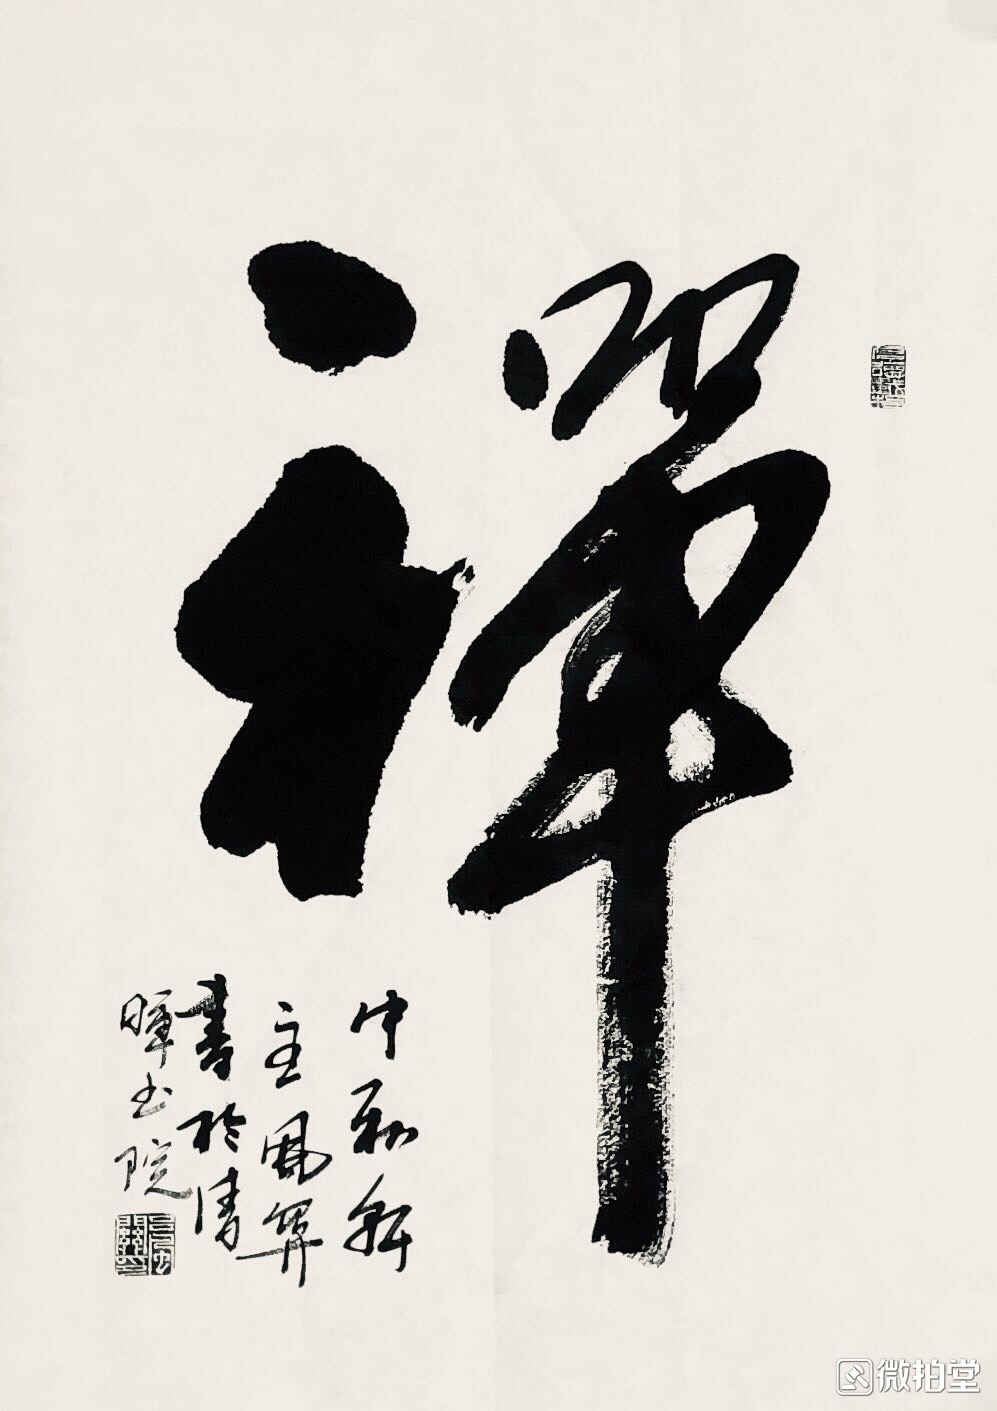 禪
中和軒
主風算
書於清
暉書院
微拍堂